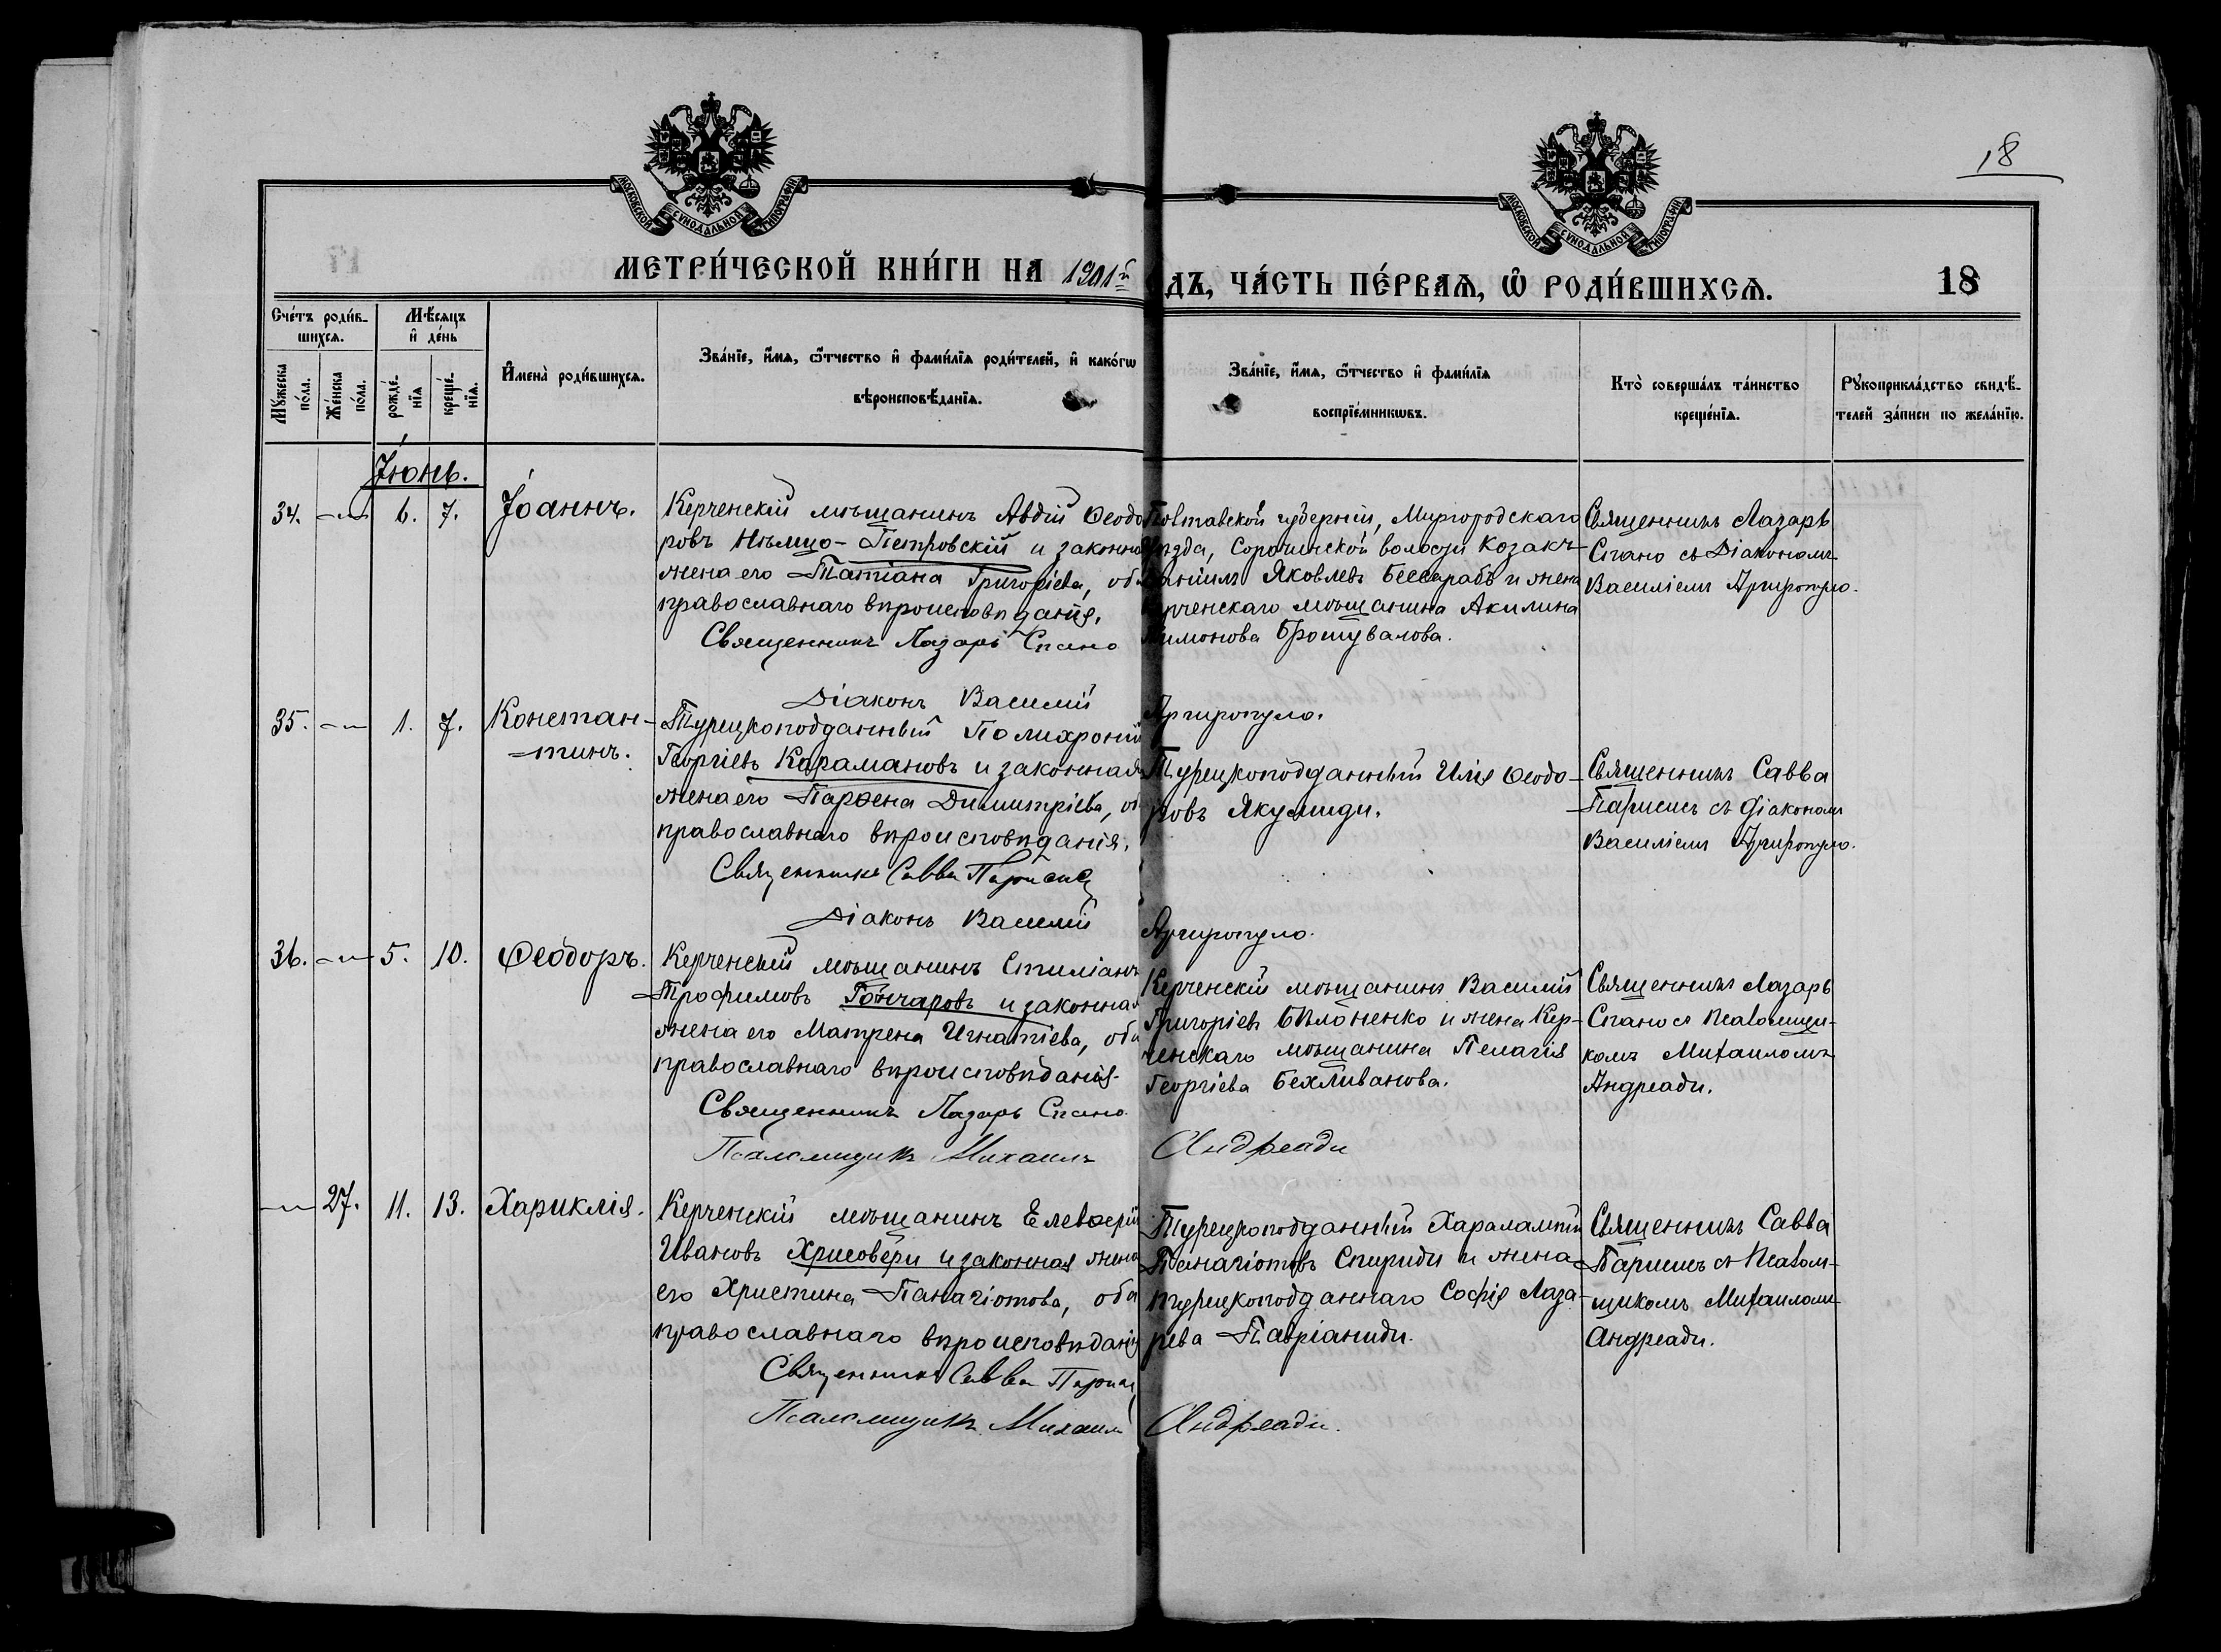 МОСКОВСКОЙ СУНОДАЛЬНОЙ ТИПОГРАФІИ
МОСКОВСКОЙ СУНОДАЛЬНОЙ ТИПОГРАФІИ
18
МЕТРИ́ЧЕСКОЙ КНИ́ГИ НА 1901й
ДЪ, ЧА́СТЬ ПЕ́РВАѦ, Ѡ҆ РОДИ́ВШИХСѦ.
18
Сче́тъ роди́в-
шихсѧ.
Мѣ́сѧцъ
и҆ де́нь
Мꙋ́жеска
по́ла.
Же́нска
по́ла.
рожде́-
нїѧ
креще́-
нїѧ.
И҆мена̀ роди́вшихсѧ.
Зва́нїе, и҆́мѧ, ѻ҆́тчество и҆ фами́лїѧ роди́телей, и҆ како́гѡ
вѣроисповѣ́данїѧ.
Зва́нїе, и҆́мѧ, ѻ҆́тчество и҆ фами́лїѧ
воспрїе́мникѡвъ.
Кто̀ соверша́лъ та́инство
креще́нїѧ.
Рꙋкоприкла́дство свидѣ́-
телей за́писи по жела́нїю.
Іюнь.
34. 6. 7. Іоаннъ.
Керченскій мѣщанинъ Авдій Ѳеодо
ровъ Нѣмцо-Петровскій и законна
жена его Татіана Григоріева, оба
православнаго вѣроисповѣданія.
Священникъ Лазарь Спано
Діаконъ Василій
Полтавской губерніи, Миргородскаго
уѣзда, Сорочинской волости козакъ
Даніилъ Яковлевъ Бессарабъ и жена
Керченскаго мѣщанина Акилина
Лимонова
Аргиропуло.
Священникъ Лазарь
Спано съ Діакономъ
Василіемъ Аргиропуло.
35. 1. 7. Констан-
тинъ.
Турецкоподданный Полихроній
Георгіевъ Карамановъ и законная
жена его Парѳена Димитріева, об
православнаго вѣроисповѣданія.
Священникъ Савва Парисис
Діаконъ Василій
Турецкоподданный Илія Ѳеодо-
ровъ Якумиди.
Аргиропуло.
Священникъ Савва
Парисисъ съ діакономъ
Василіемъ Аргиропуло.
36. 5. 10. Ѳеодоръ.
Керченскій мѣщанинъ Стиліанъ
Трофимовъ Гончаровъ и законная
жена его Матрена Игнатіева, оба
православнаго вѣроисповѣданія.
Священникъ Лазарь Спано
Псаломщикъ Михаилъ
Керченскій мѣщанинъ Василій
Григоріевъ Бѣлоненко и жена Кер-
ченскаго мѣщанина Пелагія
Георгіева Бехливанова.
Андреади
Священникъ Лазарь
Спано съ Псаломщи-
комъ Михаиломъ
Андреади.
27. 11. 13. Хариклія.
Керченскій мѣщанинъ Елевѳерій
Ивановъ Хрисовери и законная жена
его Христина Панагіотова, оба
православнаго вѣроисповѣданія
Священникъ Савва Парисис
Псаломщикъ Михаилъ
Турецкоподданный Харалампій
Панагіотовъ Спириди и жена
турецкоподданнаго Софія Лаза-
рева Павріаниди.
Андреади.
Священникъ Савва
Парисисъ съ Псалом-
щикомъ Михаиломъ
Андреади.